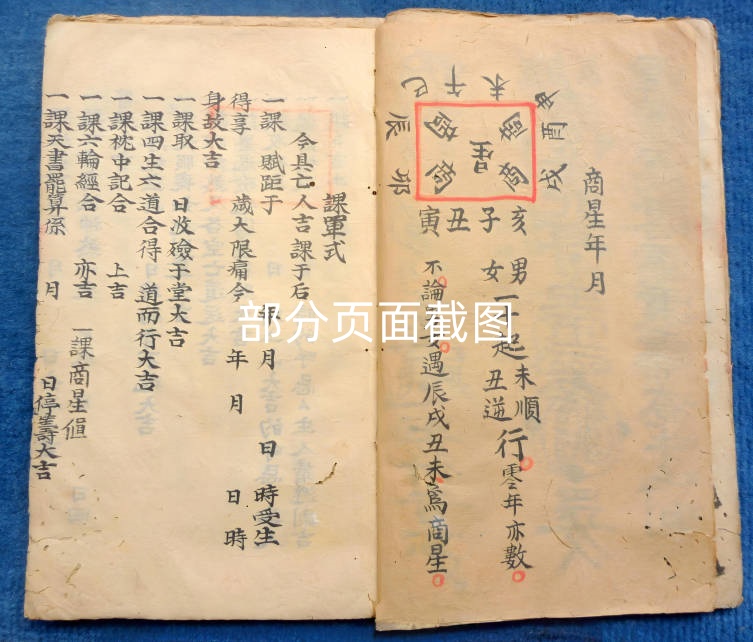 商星年月
巳午未申
辰酉
卯戌
寅丑子亥
商商
星
商商
男
女
一十起
未順
丑逆
行
零年亦數
不論男女遇辰戌丑未為商星
部分页面截图
課單式
今具亡人吉課于后
一課 賦距于 年 月 日 時受生
得享 歲大限痛今 年 月 日 時
身故大吉
一課取 日收殮于堂大吉
一課四生六道合得 道而行大吉
一課枕中記合 上吉
一課六輪經合 亦吉 一課商星值
一課天書罷算係 月 日停䘮壽大吉